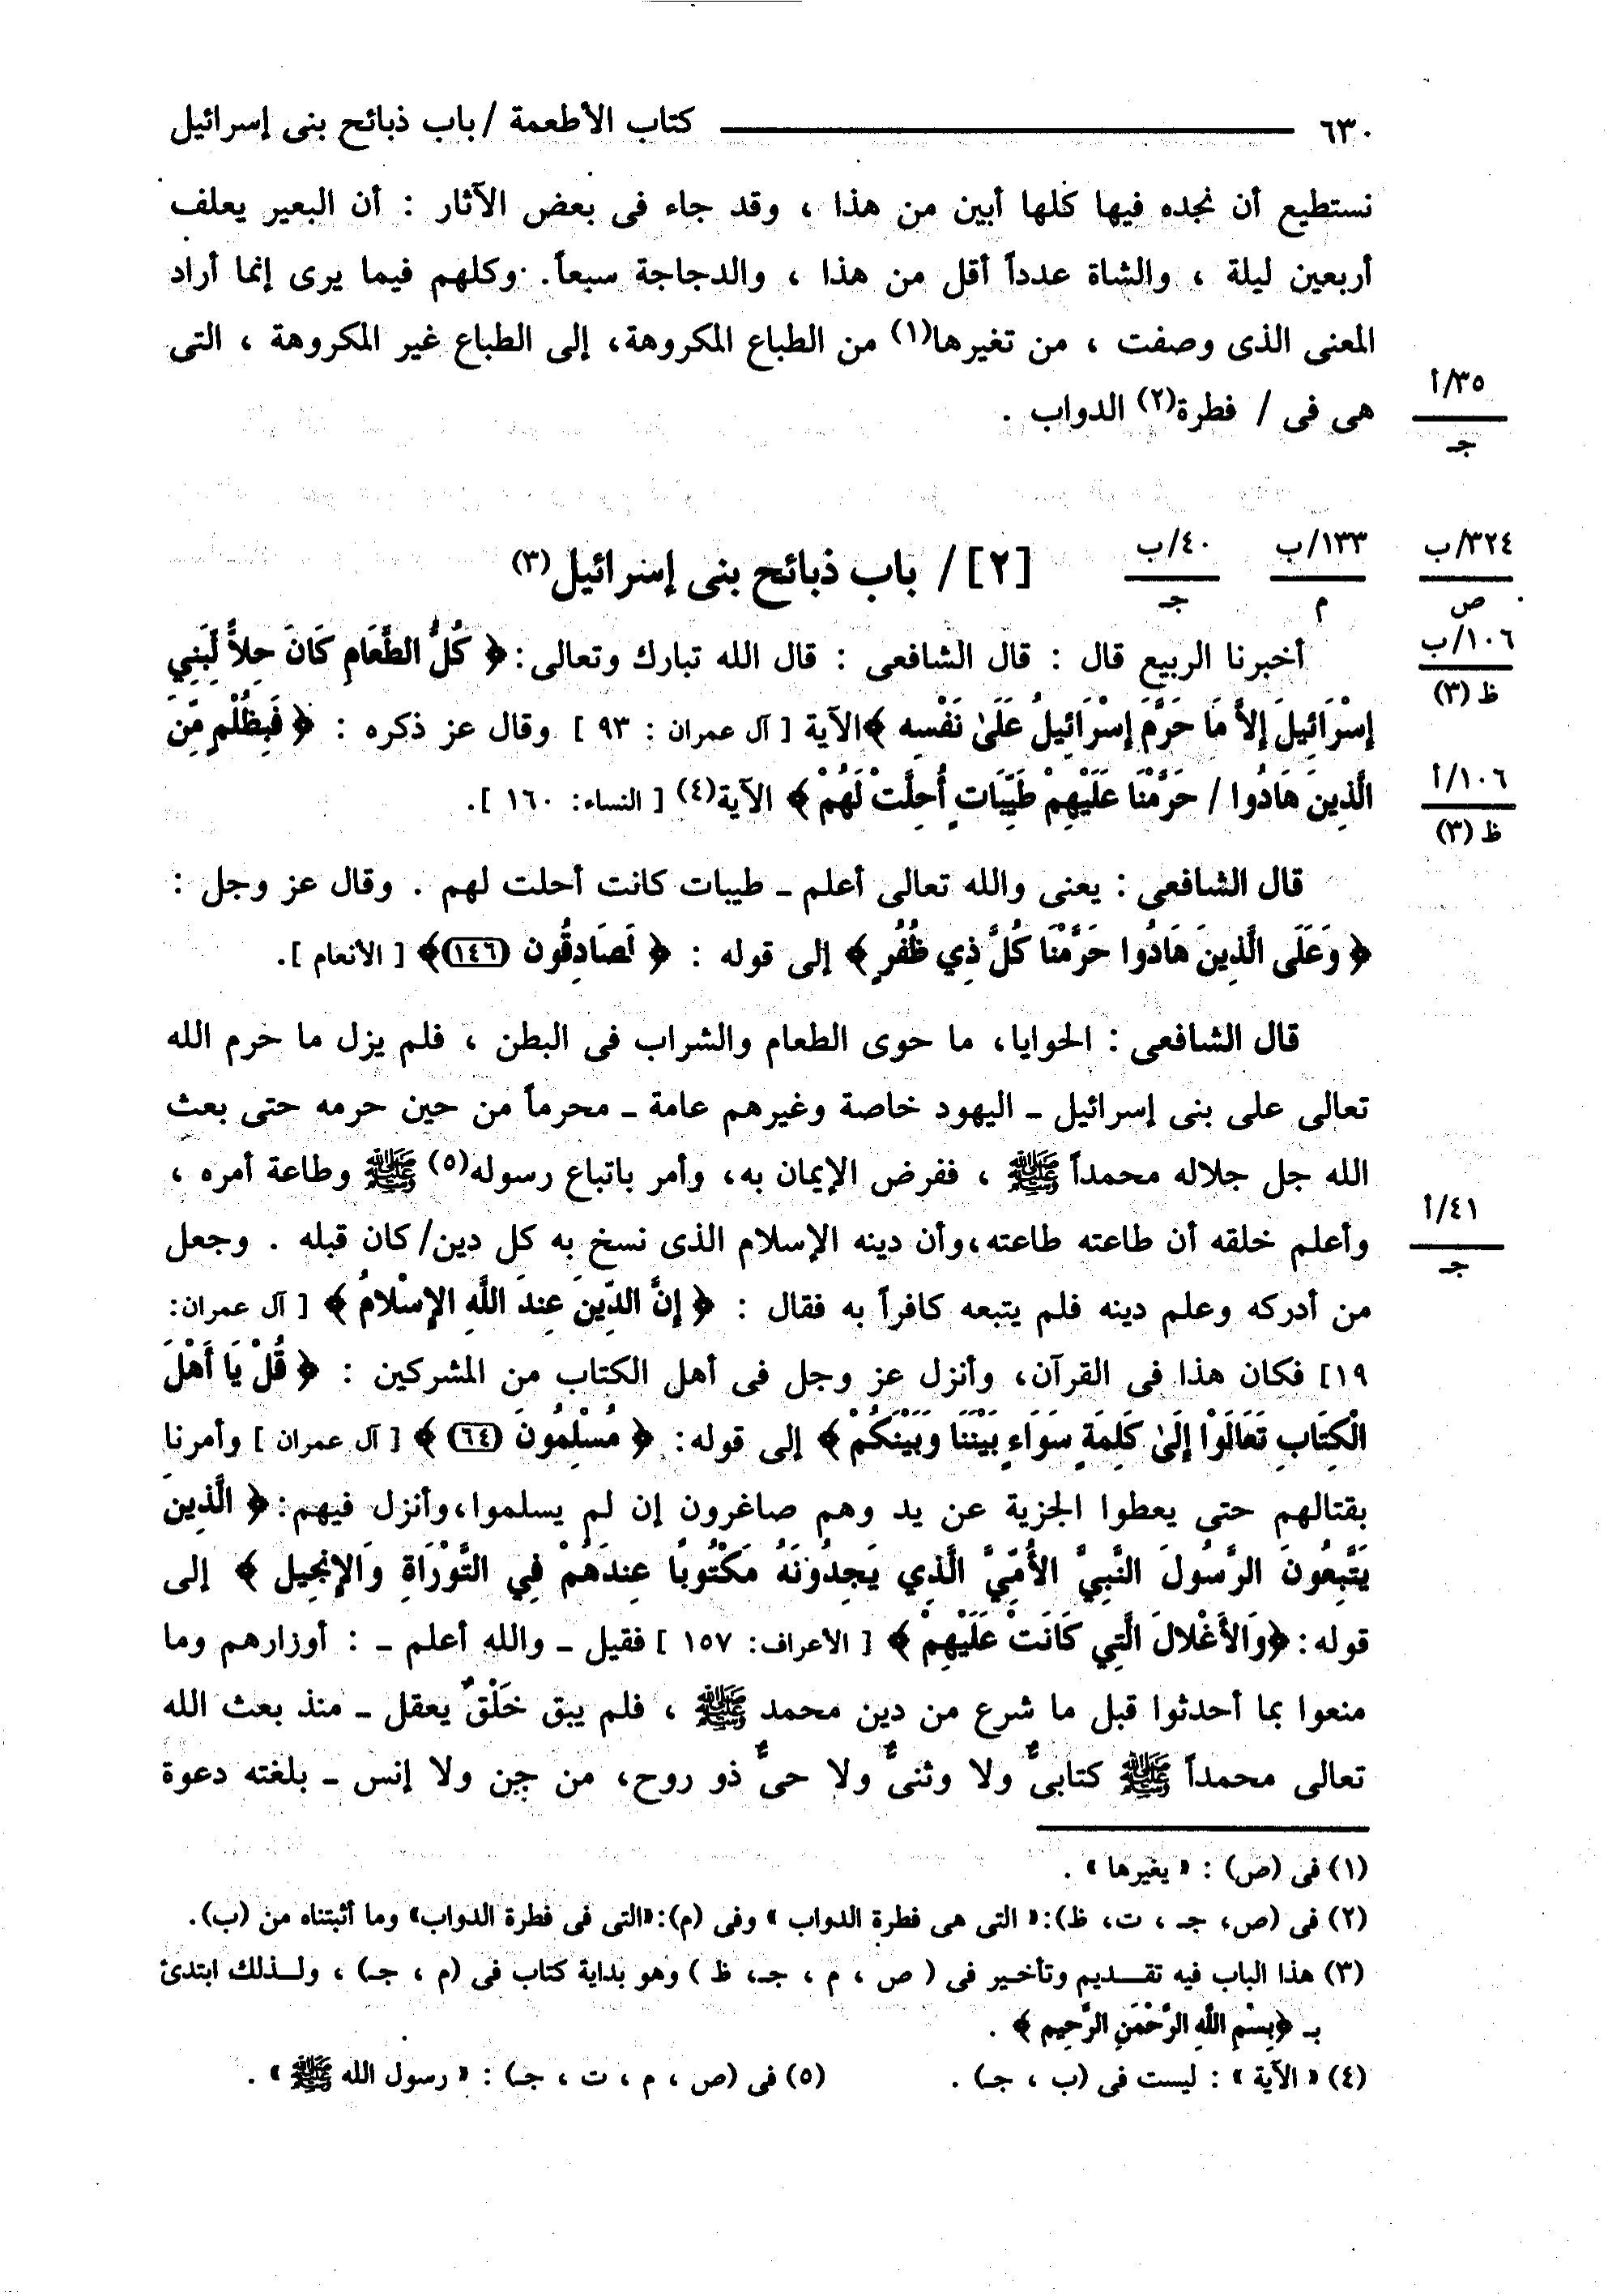 ٦٣٠ كتاب الأطعمة / باب ذبائح بنى إسرائيل
نستطيع أن نجده فيها كلها أبين من هذا ، وقد جاء فى بعض الآثار : أن البعير يعلف
أربعين ليلة ، والشاة عدداً أقل من هذا ، والدجاجة سبعاً. وكلهم فيما يرى إنما أراد
المعنى الذى وصفت ، من تغيرها(١) من الطباع المكروهة، إلى الطباع غير المكروهة ، التى
٣٥/أ
هى فى / فطرة(٢) الدواب .
جـ
٣٢٤/ب ١٣٣/ب ٤٠/ب
[٢] / باب ذبائح بنى إسرائيل(٣)
ص م جـ
١٠٦/ب
أخبرنا الربيع قال : قال الشافعى : قال الله تبارك وتعالى: ﴿ كُلُّ الطَّعَامِ كَانَ حِلاًّ لِّبَنِي
ظ (٣)
إِسْرَائِيلَ إِلاَّ مَا حَرَّمَ إِسْرَائِيلُ عَلَىٰ نَفْسِهِ ﴾الآية [ آل عمران : ٩٣ ] وقال عز ذكره : ﴿ فَبِظُلْمٍ مِّنَ
١٠٦/أ
الَّذِينَ هَادُوا / حَرَّمْنَا عَلَيْهِمْ طَيِّبَاتٍ أُحِلَّتْ لَهُمْ ﴾ الآية(٤) [ النساء: ١٦٠ ].
ظ (٣)
قال الشافعى : يعنى والله تعالى أعلم ـ طيبات كانت أحلت لهم . وقال عز وجل :
﴿ وَعَلَى الَّذِينَ هَادُوا حَرَّمْنَا كُلَّ ذِي ظُفُرٍ ﴾ إلى قوله : ﴿ لَصَادِقُون (١٤٦)﴾ [ الأنعام ].
قال الشافعى : الحوايا، ما حوى الطعام والشراب فى البطن ، فلم يزل ما حرم الله
تعالى على بنى إسرائيل ـ اليهود خاصة وغيرهم عامة ـ محرماً من حين حرمه حتى بعث
الله جل جلاله محمداً ﷺ ، ففرض الإيمان به، وأمر باتباع رسوله(٥) ﷺ وطاعة أمره ،
٤١/أ
وأعلم خلقه أن طاعته طاعته،وأن دينه الإسلام الذى نسخ به كل دين/ كان قبله . وجعل
جـ
من أدركه وعلم دينه فلم يتبعه كافراً به فقال : ﴿ إِنَّ الدِّينَ عِندَ اللَّهِ الإِسْلامُ ﴾ [ آل عمران:
١٩] فكان هذا فى القرآن، وأنزل عز وجل فى أهل الكتاب من المشركين : ﴿ قُلْ يَا أَهْلَ
الْكِتَابِ تَعَالَوْا إِلَىٰ كَلِمَةٍ سَوَاءٍ بَيْنَنَا وَبَيْنَكُمْ ﴾ إلى قوله: ﴿ مُسْلِمُونَ (٦٤) ﴾ [ آل عمران ] وأمرنا
بقتالهم حتى يعطوا الجزية عن يد وهم صاغرون إن لم يسلموا،وأنزل فيهم: ﴿ الَّذِينَ
يَتَّبِعُونَ الرَّسُولَ النَّبِيَّ الأُمِّيَّ الَّذِي يَجِدُونَهُ مَكْتُوبًا عِندَهُمْ فِي التَّوْرَاةِ وَالإِنجِيل ﴾ إلى
قوله: ﴿وَالأَغْلالَ الَّتِي كَانَتْ عَلَيْهِمْ ﴾ [ الأعراف: ١٥٧ ] فقيل ـ والله أعلم ـ : أوزارهم وما
منعوا بما أحدثوا قبل ما شرع من دين محمد ﷺ ، فلم يبق خَلْقٌ يعقل ـ منذ بعث الله
تعالى محمداً ﷺ كتابىٌّ ولا وثنىٌّ ولا حىٌّ ذو روح، من جن ولا إنس ـ بلغته دعوة
(١) فى (ص) : « يغيرها » .
(٢) فى (ص، جـ ، ت، ظ):« التى هى فطرة الدواب » وفى (م):«التى فى فطرة الدواب» وما أثبتناه من (ب).
(٣) هذا الباب فيه تقـديم وتأخـير فى ( ص ، م ، جـ، ظ ) وهو بداية كتاب فى (م ، جـ) ، ولـذلك ابتدئ
بـ ﴿بِسْمِ اللَّهِ الرَّحْمَنِ الرَّحِيم ﴾ .
(٤) « الآية » : ليست فى (ب ، جـ) . (٥) فى (ص ، م ، ت ، جـ) : « رسول الله ﷺ » .